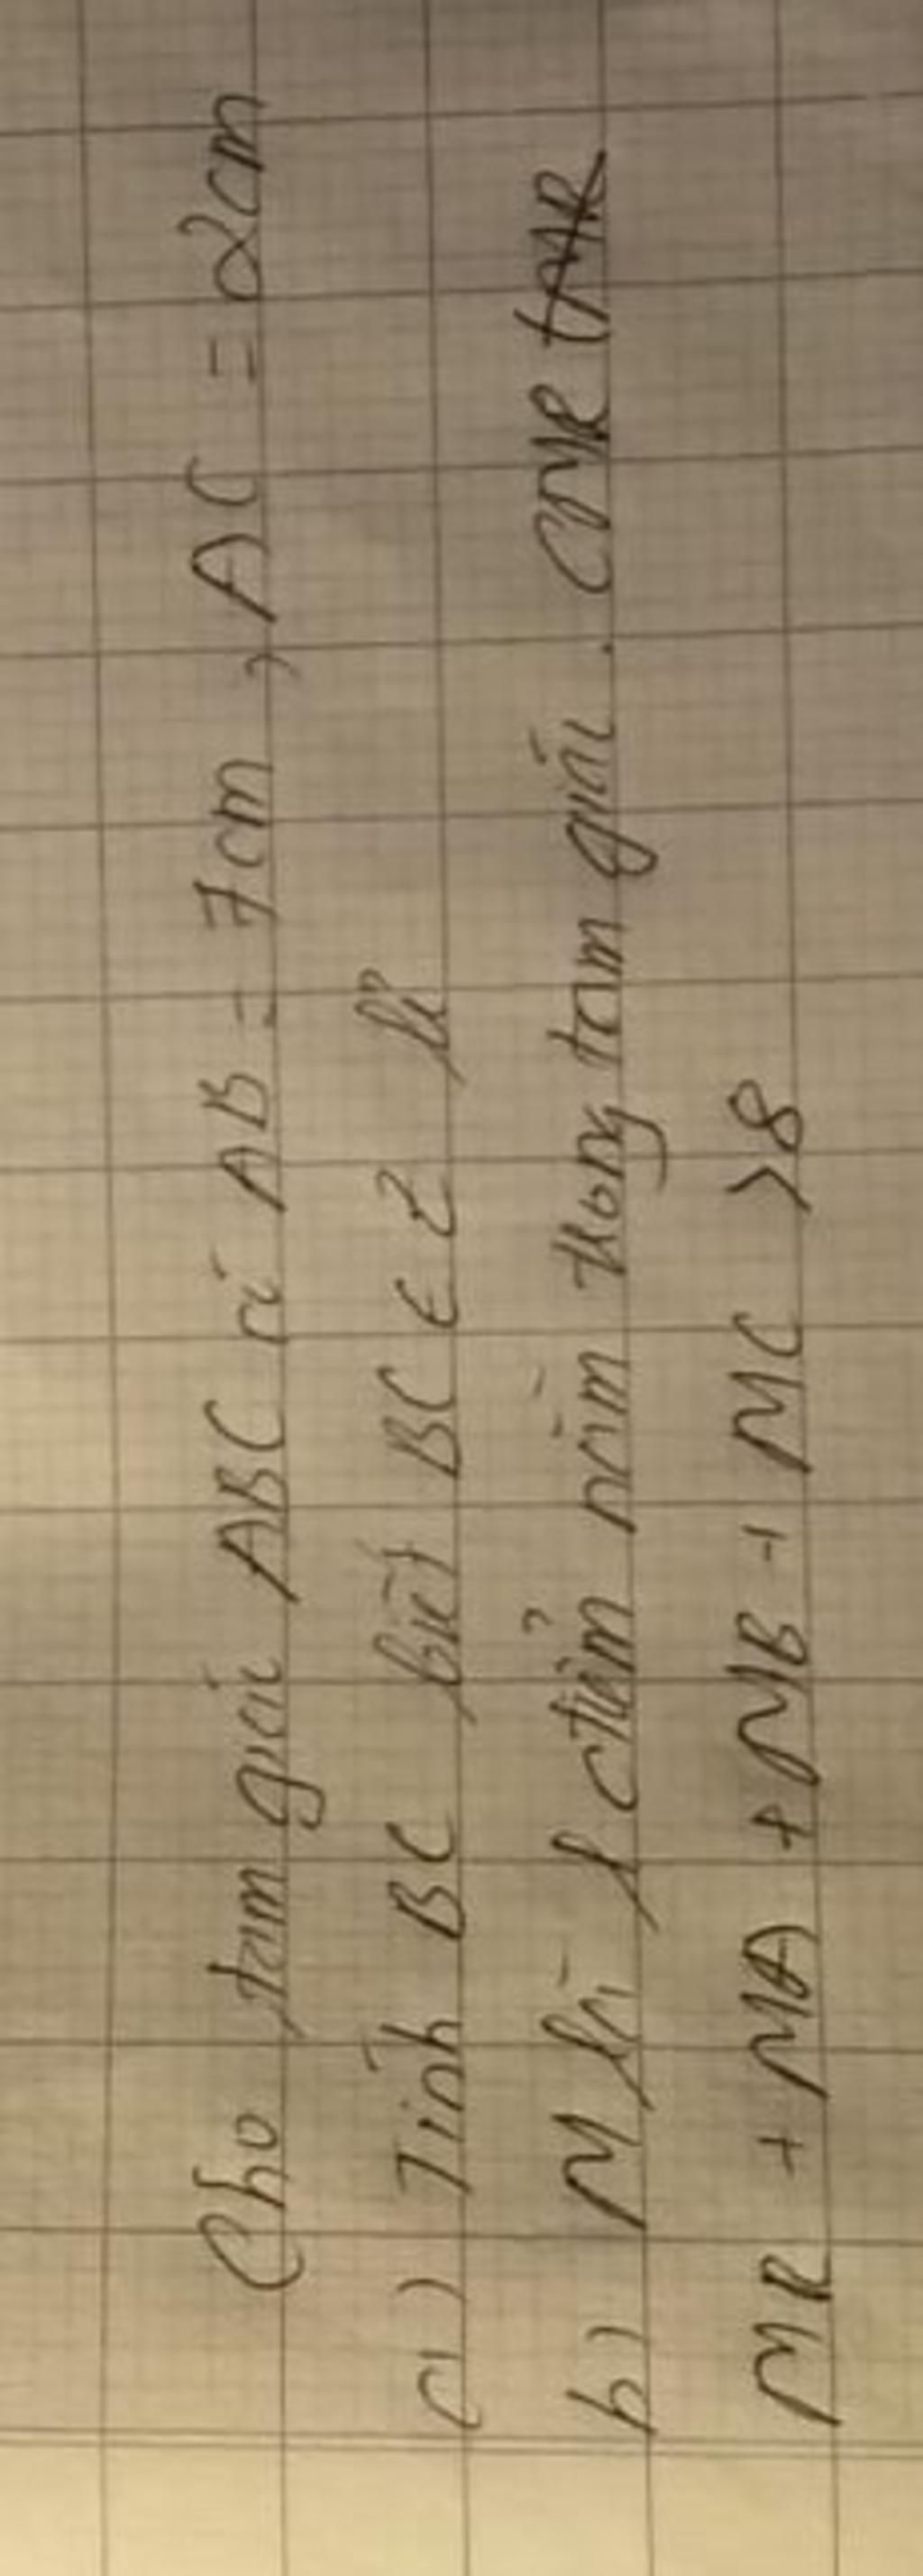 Cho tam giác ABC có AB = 7cm, AC = 2cm
a) Tính BC biết BC ∈ Z lẻ
b) M là 1 điểm nằm trong tam giác. CMR
MR + MA + MB + MC > 8